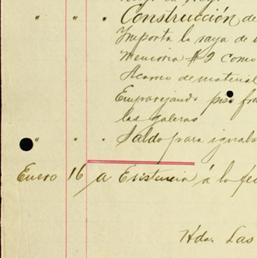 " " " Construcción de
Importa la raya de
Memoria #9 como
Acarreo de material
Emparejando piso
las galeras
" " " Saldo para igualar
Enero 16 a Existencia á la fe
Hda Las